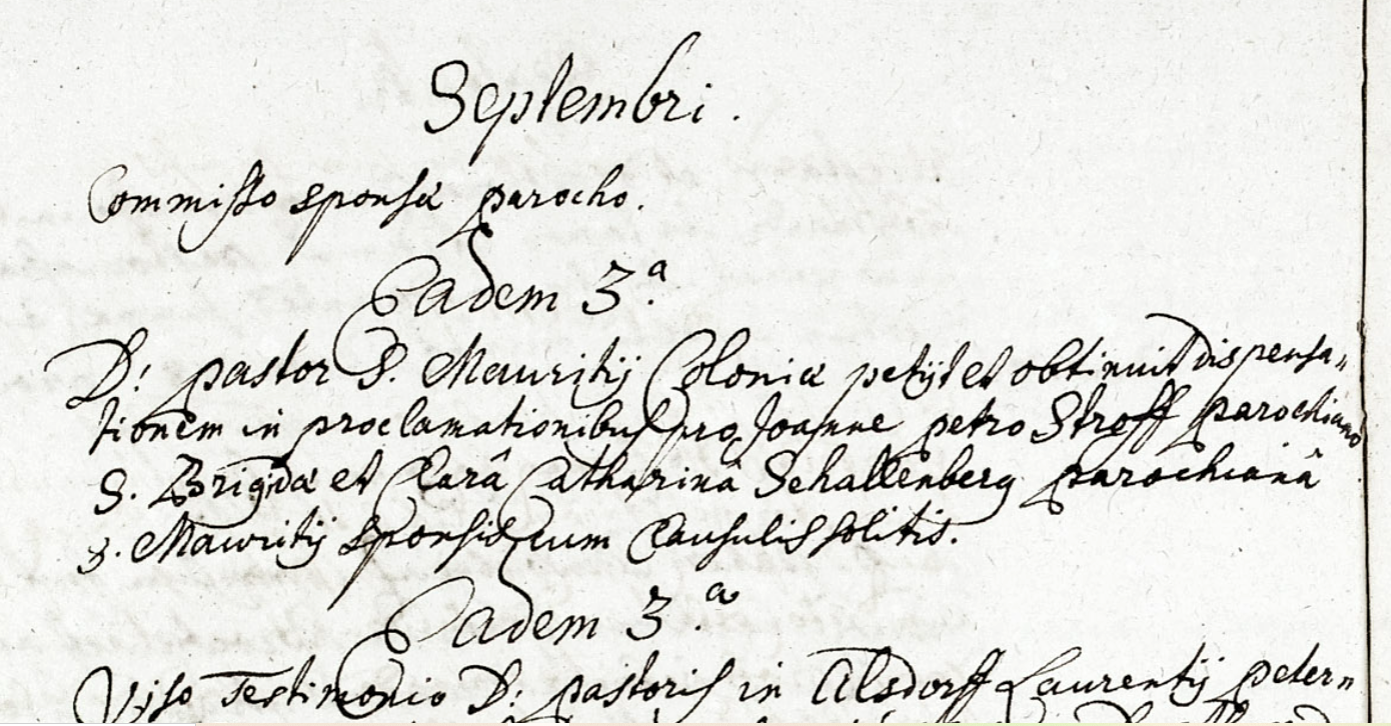 Septembri.
Commisso sponsæ parocho.
Eadem 3.ª
D: pastor S. Mauritij Coloniæ petijt et obtinuit dispensa„
tionem in proclamationibus pro Joanne petro Stroff parochiano
S. Brigidæ et Clarâ Catharinâ Schallenberg parochianâ
S. Mauritij sponsis cum clausulis solitis.
Eadem 3.ª
Viso Testimonio D: pastoris in Alsdorff Laurentij peters